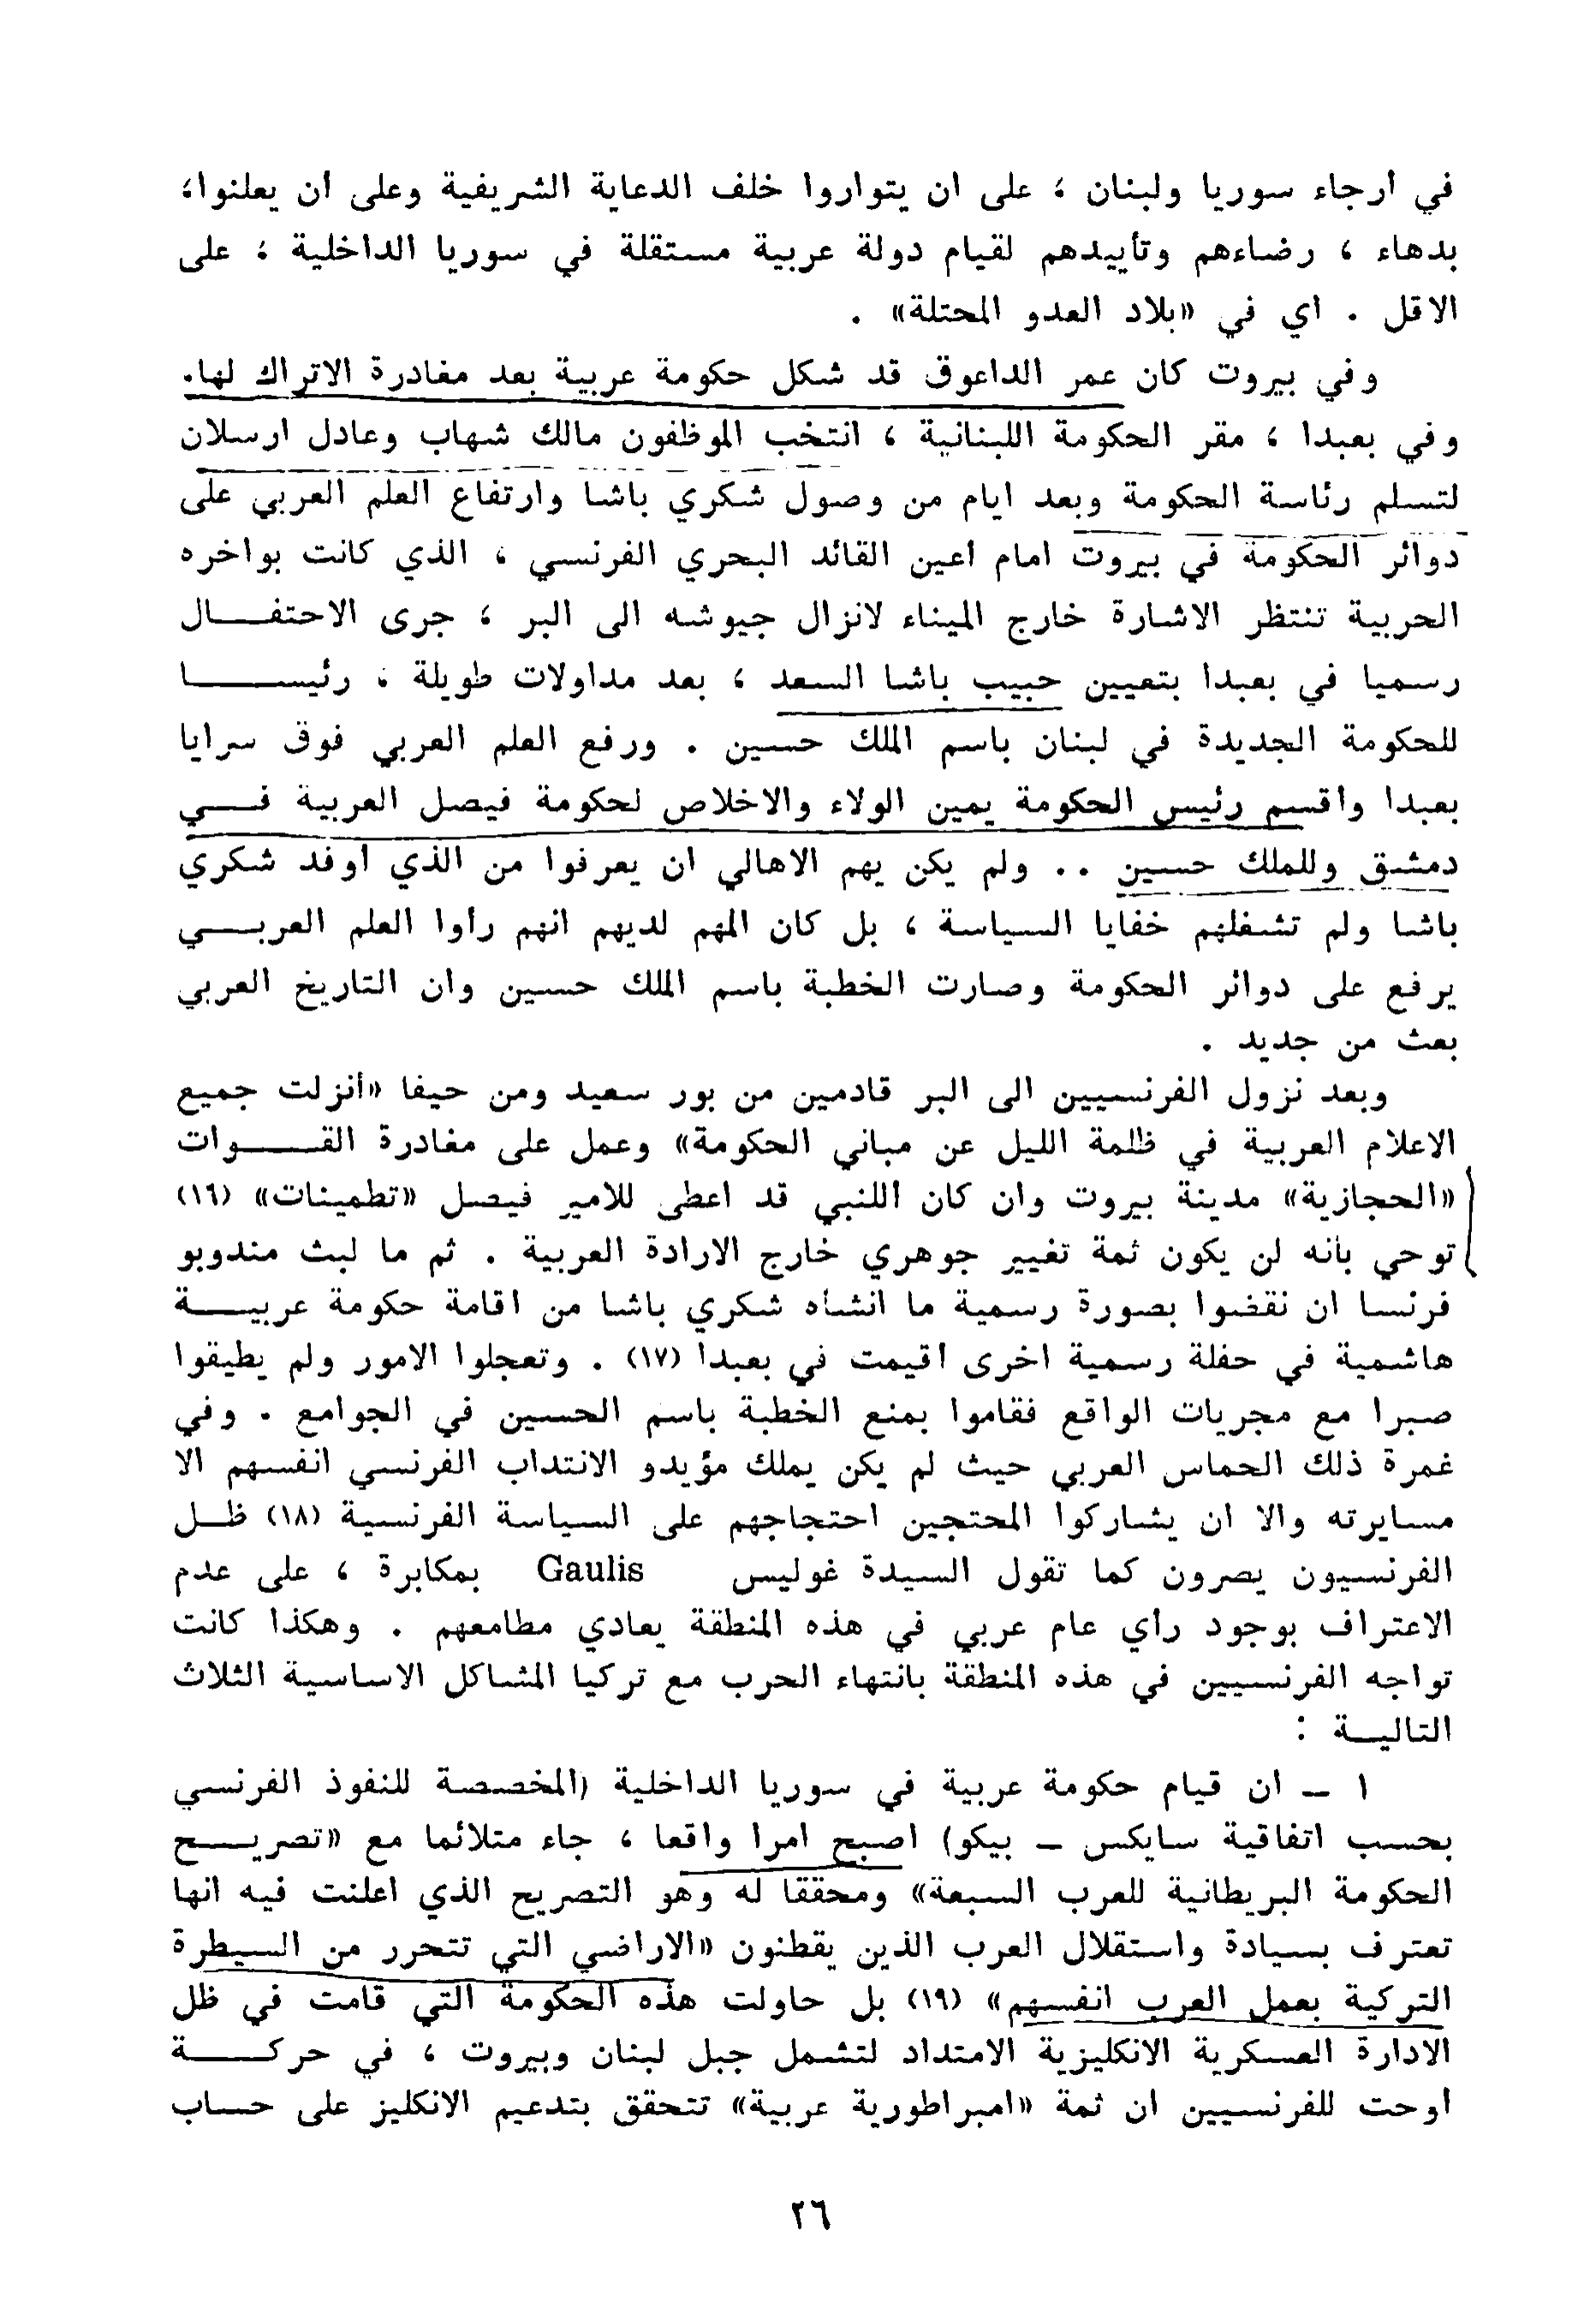 في أرجاء سوريا ولبنان ، على ان يتواروا خلف الدعاية الشريفية وعلى أن يعلنوا،
بدهاء ، رضاءهم وتأييدهم لقيام دولة عربية مستقلة في سوريا الداخلية ، على
الاقل . اي في «بلاد العدو المحتلة» .
وفي بيروت كان عمر الداعوق قد شكل حكومة عربية بعد مغادرة الاتراك لها.
وفي بعبدا ، مقر الحكومة اللبنانية ، انتخب الموظفون مالك شهاب وعادل ارسلان
لتسلم رئاسة الحكومة وبعد ايام من وصول شكري باشا وارتفاع العلم العربي على
دوائر الحكومة في بيروت امام أعين القائد البحري الفرنسي ، الذي كانت بواخره
الحربية تنتظر الاشارة خارج الميناء لانزال جيوشه الى البر ، جرى الاحتفـــال
رسميا في بعبدا بتعيين حبيب باشا السعد ، بعد مداولات طويلة ، رئيســـــا
للحكومة الجديدة في لبنان باسم الملك حسين . ورفع العلم العربي فوق سرايا
بعبدا وأقسم رئيس الحكومة يمين الولاء والاخلاص لحكومة فيصل العربية فـــي
دمشق وللملك حسين .. ولم يكن يهم الاهالي ان يعرفوا من الذي أوفد شكري
باشا ولم تشغلهم خفايا السياسة ، بل كان المهم لديهم انهم رأوا العلم العربـــي
يرفع على دوائر الحكومة وصارت الخطبة باسم الملك حسين وان التاريخ العربي
بعث من جديد .
وبعد نزول الفرنسيين الى البر قادمين من بور سعيد ومن حيفا «أنزلت جميع
الاعلام العربية في ظلمة الليل عن مباني الحكومة» وعمل على مغادرة القـــــوات
«الحجازية» مدينة بيروت وان كان اللنبي قد اعطى للامير فيصل «تطمينات» (١٦)
توحي بأنه لن يكون ثمة تغيير جوهري خارج الارادة العربية . ثم ما لبث مندوبو
فرنسا ان نقضوا بصورة رسمية ما انشأه شكري باشا من اقامة حكومة عربيـــة
هاشمية في حفلة رسمية اخرى أقيمت في بعبدا (١٧) . وتعجلوا الامور ولم يطيقوا
صبرا مع مجريات الواقع فقاموا بمنع الخطبة باسم الحسين في الجوامع . وفي
غمرة ذلك الحماس العربي حيث لم يكن يملك مؤيدو الانتداب الفرنسي انفسهم الا
مسايرته والا ان يشاركوا المحتجين احتجاجهم على السياسة الفرنسية (١٨) ظــل
الفرنسيون يصرون كما تقول السيدة غوليس Gaulis بمكابرة ، على عدم
الاعتراف بوجود رأي عام عربي في هذه المنطقة يعادي مطامعهم . وهكذا كانت
تواجه الفرنسيين في هذه المنطقة بانتهاء الحرب مع تركيا المشاكل الاساسية الثلاث
التاليــة :
١ – ان قيام حكومة عربية في سوريا الداخلية (المخصصة للنفوذ الفرنسي
بحسب اتفاقية سايكس – بيكو) اصبح امرا واقعا ، جاء متلائما مع «تصريـــح
الحكومة البريطانية للعرب السبعة» ومحققا له وهو التصريح الذي اعلنت فيه انها
تعترف بسيادة واستقلال العرب الذين يقطنون «الاراضي التي تتحرر من السيطرة
التركية بعمل العرب انفسهم» (١٩) بل حاولت هذه الحكومة التي قامت في ظل
الادارة العسكرية الانكليزية الامتداد لتشمل جبل لبنان وبيروت ، في حركـــــة
اوحت للفرنسيين ان ثمة «امبراطورية عربية» تتحقق بتدعيم الانكليز على حساب
٢٦